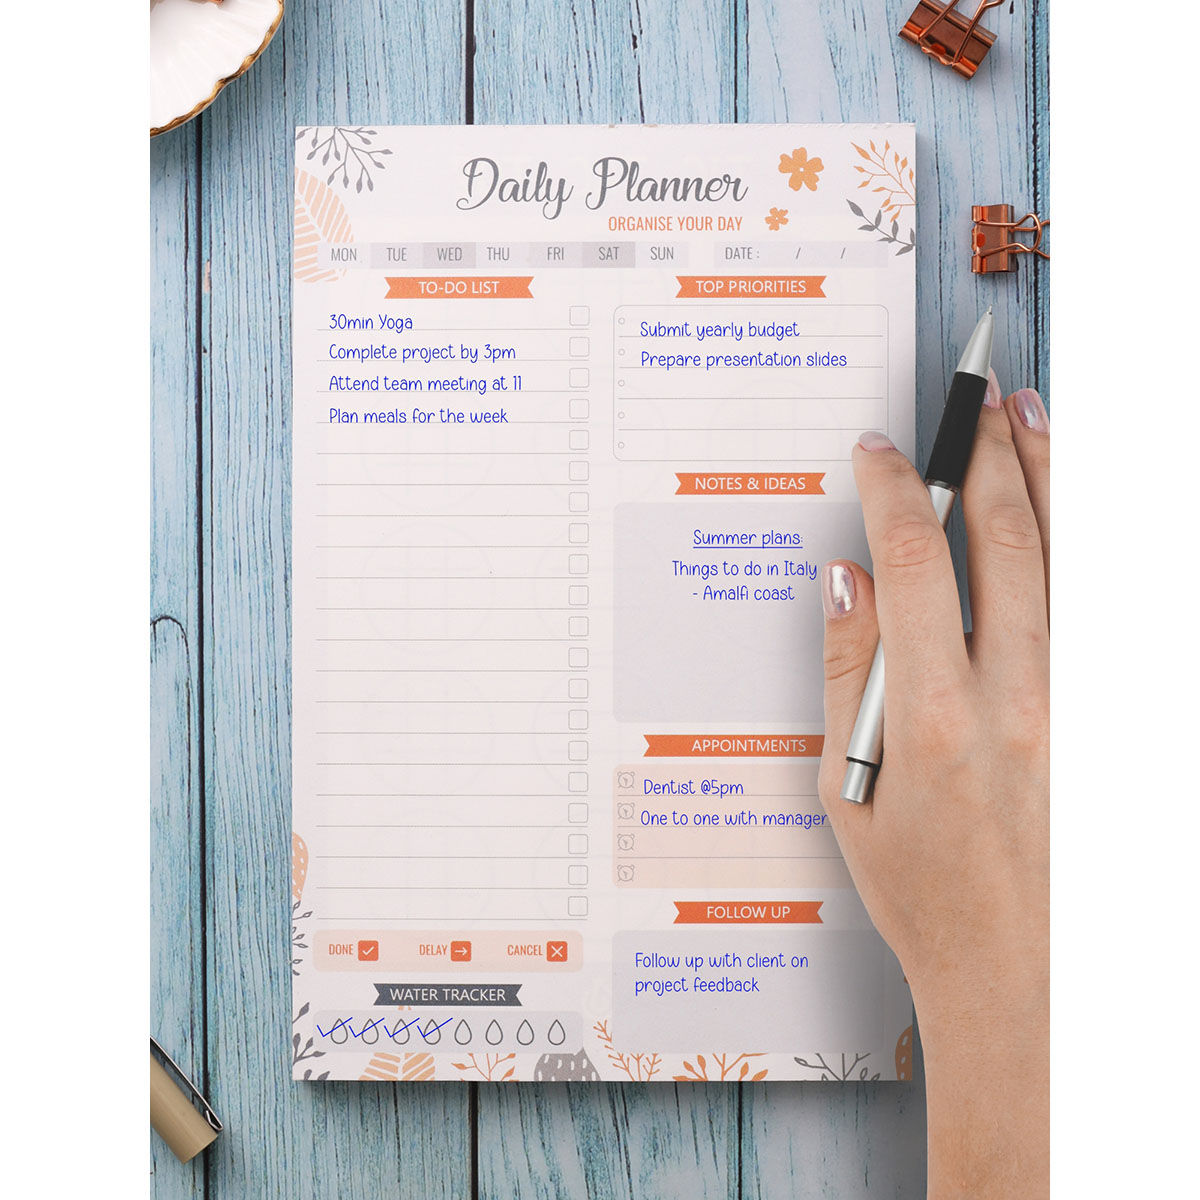 Daily Planner
ORGANISE YOUR DAY
MON TUE WED THU FRI SAT SUN DATE : / /
TO-DO LIST
30min Yoga
Complete project by 3pm
Attend team meeting at 11
Plan meals for the week
DONE DELAY CANCEL
WATER TRACKER
TOP PRIORITIES
Submit yearly budget
Prepare presentation slides
NOTES & IDEAS
Summer plans:
Things to do in Italy
- Amalfi coast
APPOINTMENTS
Dentist @5pm
One to one with manager
FOLLOW UP
Follow up with client on
project feedback